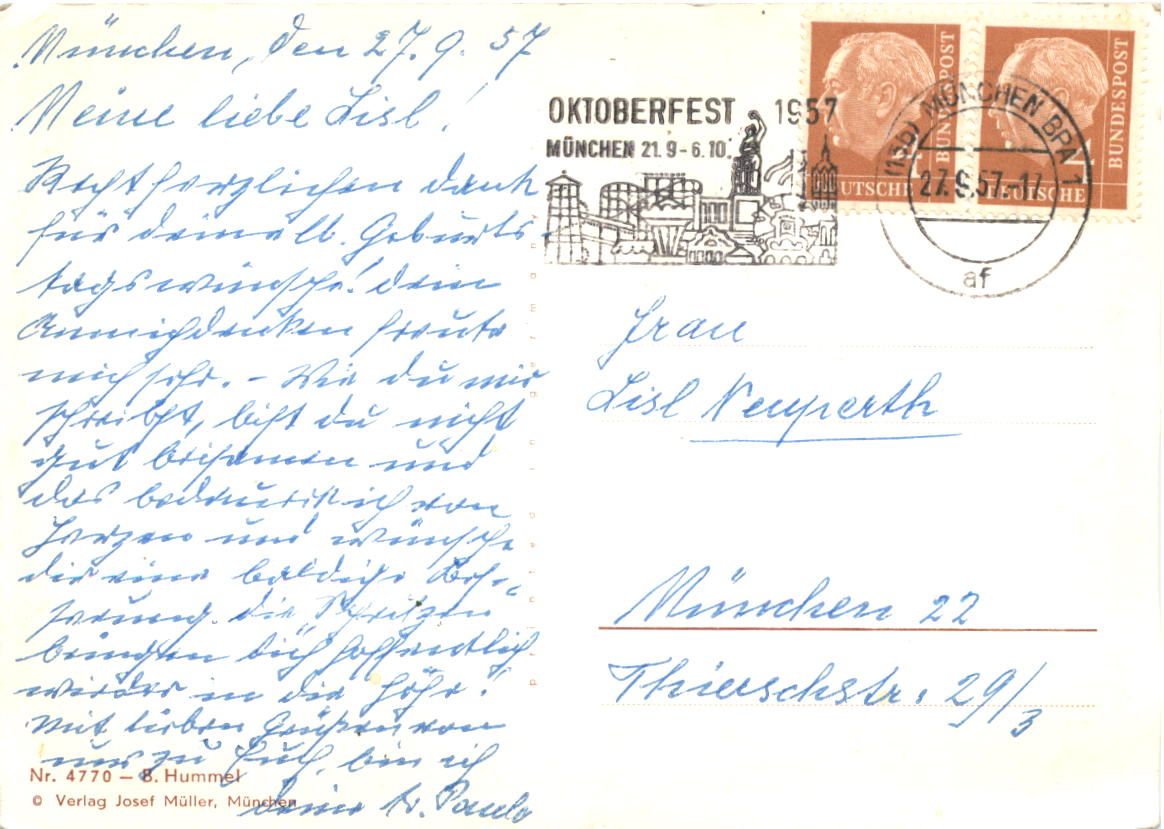 München, den 27.9.57
Meine liebe Lisl!
Recht herzlichen dank
für deine lb. Geburts-
tagswünsche! dein
Anmichdenken freute
mich sehr. – Wie du mir
schreibst, bist du nicht
gut beisammen und
das bedauere ich von
Herzen und wünsche
dir eine baldige Bes-
serung. die „Spritzen“
bringen dich hoffentlich
wieder in die Höhe!
Mit lieben Grüßen von
uns zu Euch, bin ich
deine
Nr. 4770 – B. Hummel
© Verlag Josef Müller, München
OKTOBERFEST 1957
MÜNCHEN 21.9-6.10.
DEUTSCHE BUNDESPOST
DEUTSCHE BUNDESPOST
MÜNCHEN BPA 1
27.9.57-17
af
Frau
Lisl Neuperth
München 22
Thierschstr. 29/3